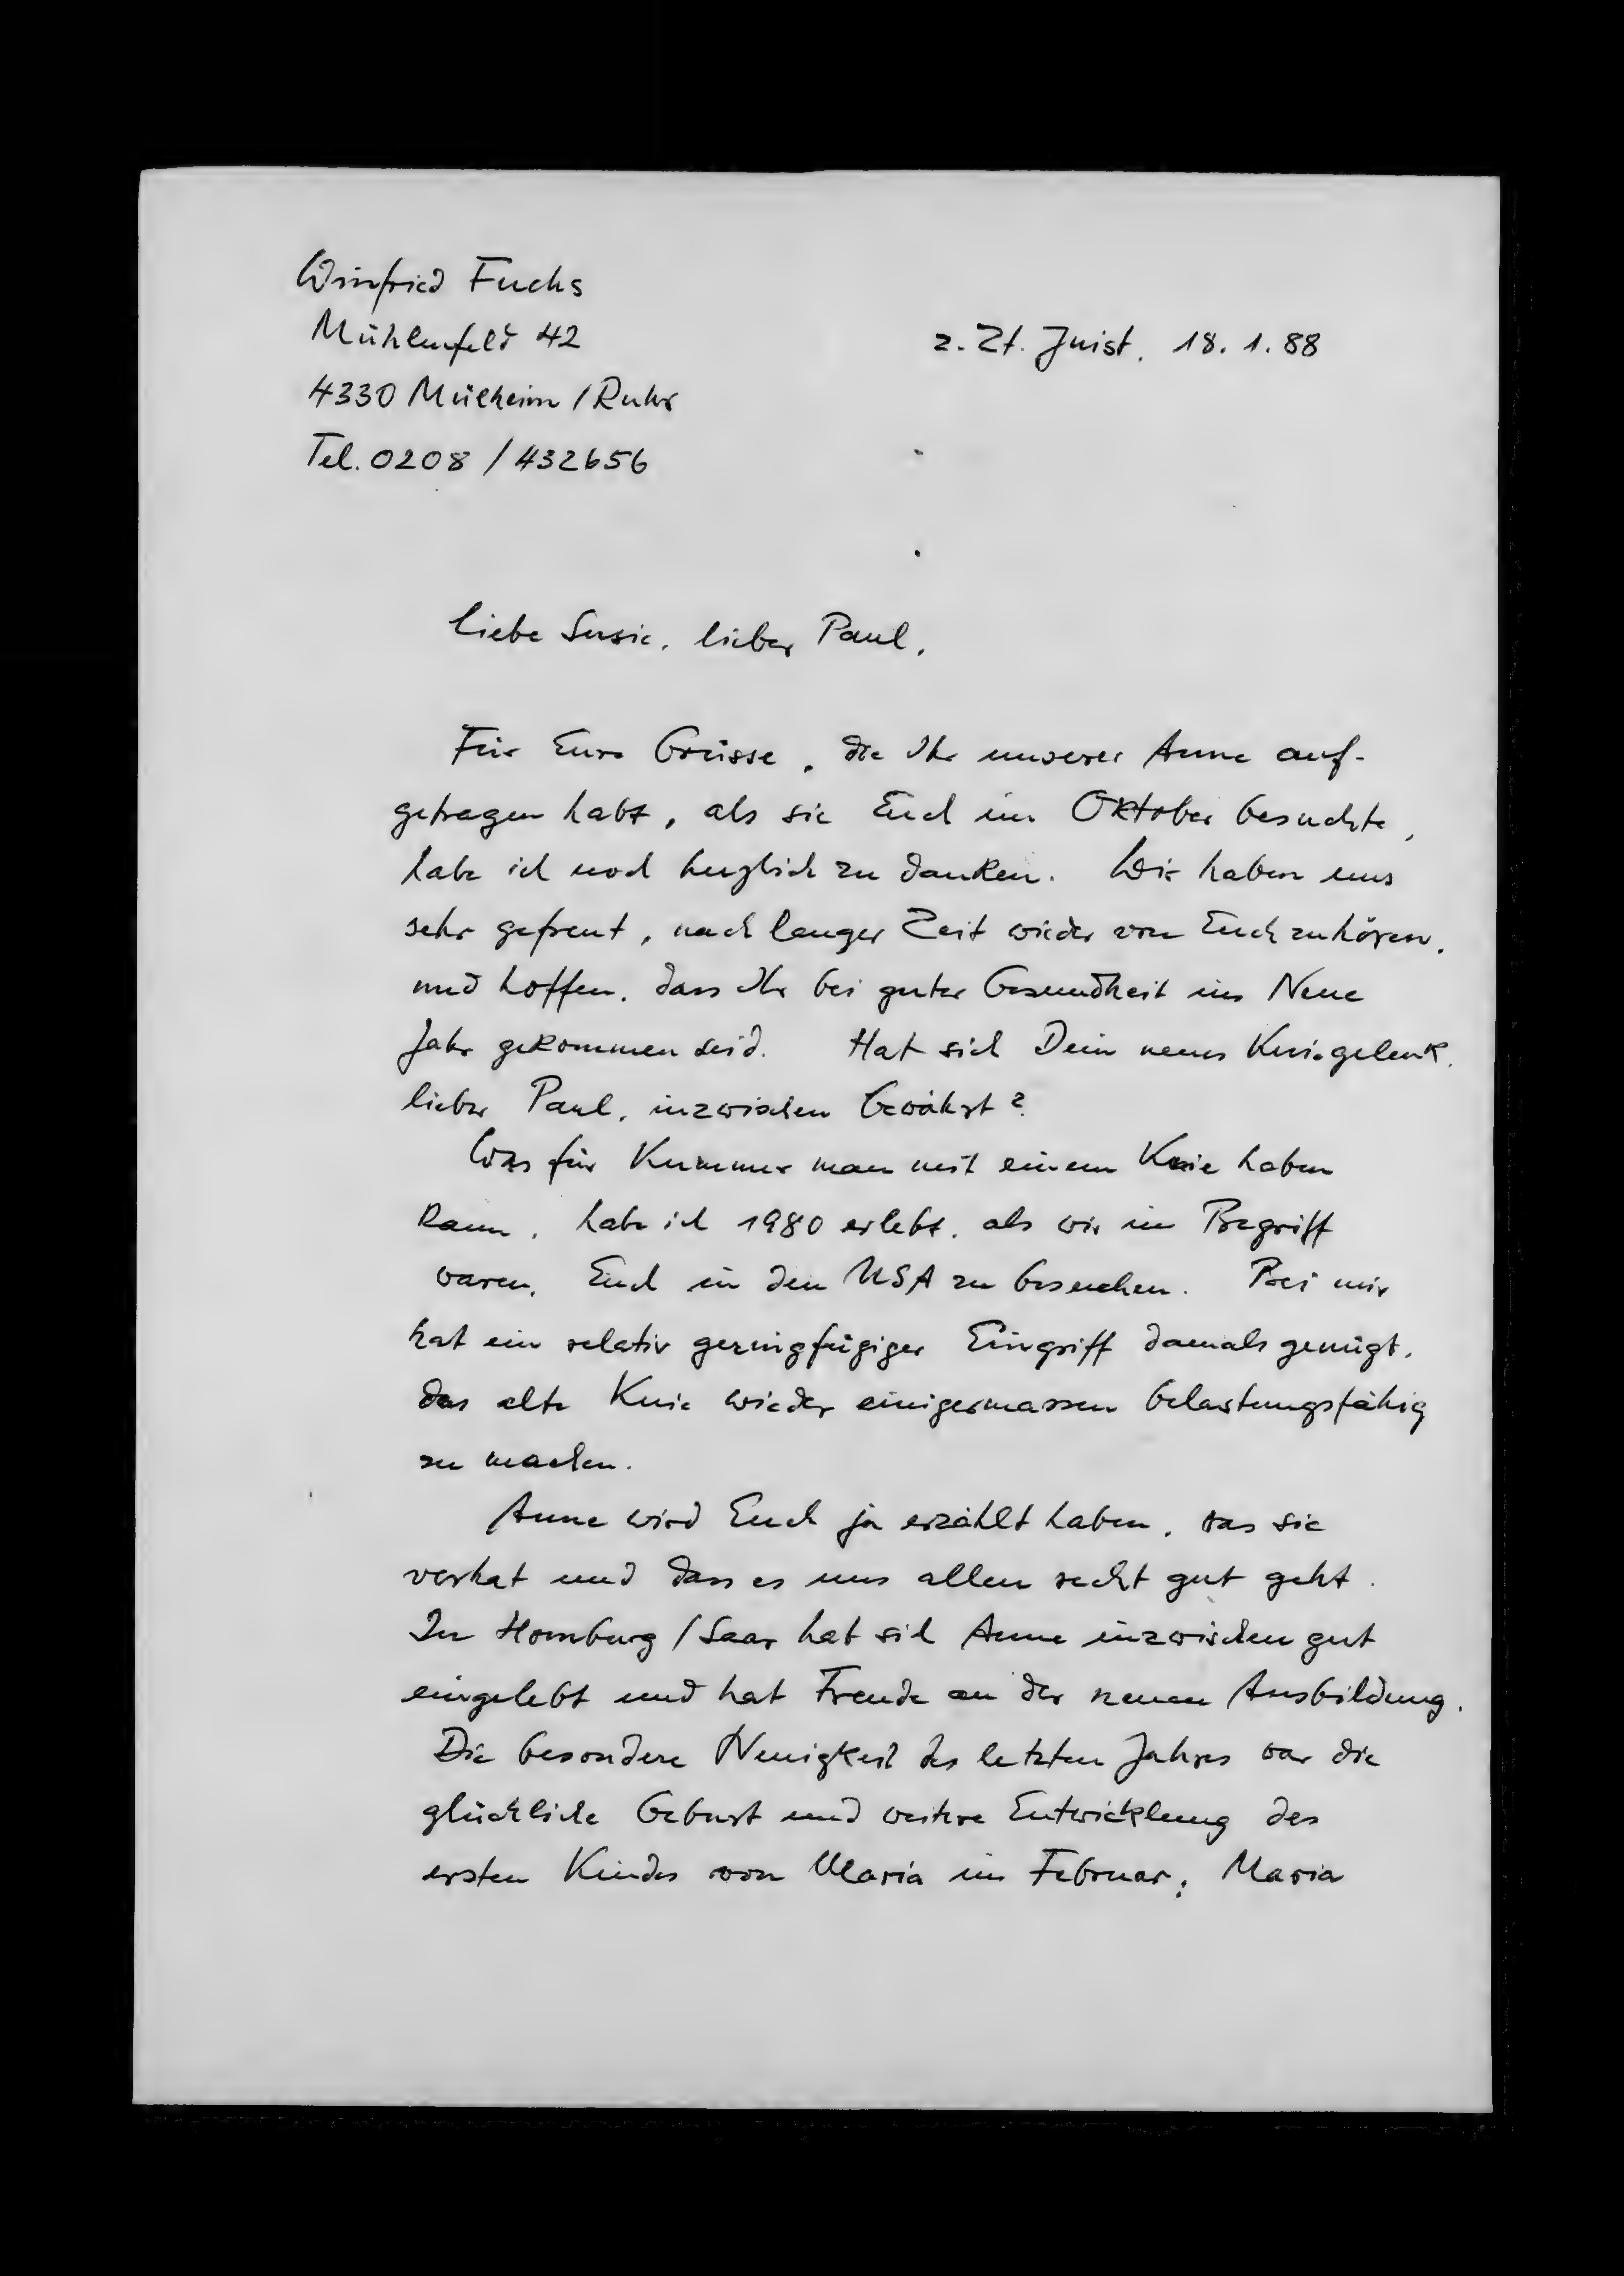 Winfried Fuchs
Mühlenfeld 42
4330 Mülheim / Ruhr
Tel. 0208 / 432656
z. Zt. Juist, 18. 1. 88
Liebe Susie, lieber Paul,
Für Eure Grüsse, die Ihr unserer Anne auf-
getragen habt, als sie Euch im Oktober besuchte,
habe ich noch herzlich zu danken. Wir haben uns
sehr gefreut, nach langer Zeit wieder von Euch zu hören,
und hoffen, dass Ihr bei guter Gesundheit ins Neue
Jahr gekommen seid. Hat sich Dein neues Kniegelenk,
lieber Paul, inzwischen bewährt?
Was für Kummer man mit einem Knie haben
kann, habe ich 1980 erlebt, als wir im Begriff
waren, Euch in den USA zu besuchen. Bei mir
hat ein relativ geringfügiger Eingriff damals genügt,
das alte Knie wieder einigermassen belastungsfähig
zu machen.
Anne wird Euch ja erzählt haben, was sie
vorhat und dass es uns allen recht gut geht.
In Homburg / Saar hat sich Anne inzwischen gut
eingelebt und hat Freude an der neuen Ausbildung.
Die besondere Neuigkeit des letzten Jahres war die
glückliche Geburt und weitere Entwicklung des
ersten Kindes von Maria im Februar; Maria